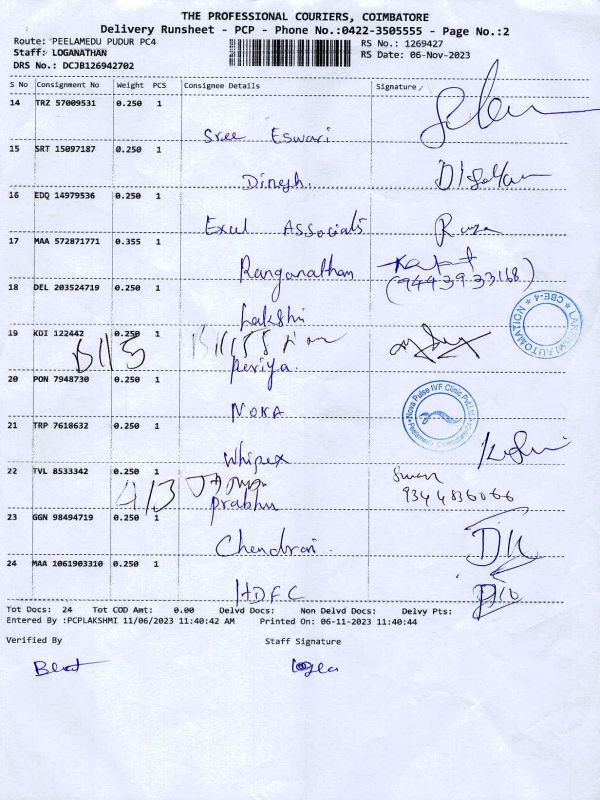 THE PROFESSIONAL COURIERS, COIMBATORE
Delivery Runsheet - PCP - Phone No.:0422-3505555 - Page No.:2
Route: PEELAMEDU PUDUR PC4 RS No.: 1269427
Staff: LOGANATHAN RS Date: 06-Nov-2023
DRS No.: DCJB126942702
S No Consignment No Weight PCS Consignee Details Signature
14 TRZ 57009531 0.250 1
Sree Eswari
15 SRT 15097187 0.250 1
Dinesh.
16 EDQ 14979536 0.250 1
Excel Associats
17 MAA 572871771 0.355 1
Ranganathan
18 DEL 203524719 0.250 1 (9443933168)
Lakshi
19 KDI 122442 0.250 1
B115
Periya.
20 PON 7948730 0.250 1
NOKA
21 TRP 7618632 0.250 1
Whipex
22 TVL 8533342 0.250 1
4/3 9344836066
Prabhu
23 GGN 98494719 0.250 1
Chendran.
24 MAA 1061903310 0.250 1
HDFC
LAKSHMI AUTOMATION * CBE-4 *
Nova Pulse IVF Clinic Pvt Ltd
Tot Docs: 24 Tot COD Amt: 0.00 Delvd Docs: Non Delvd Docs: Delvy Pts:
Entered By :PCPLAKSHMI 11/06/2023 11:40:42 AM Printed On: 06-11-2023 11:40:44
Verified By Staff Signature